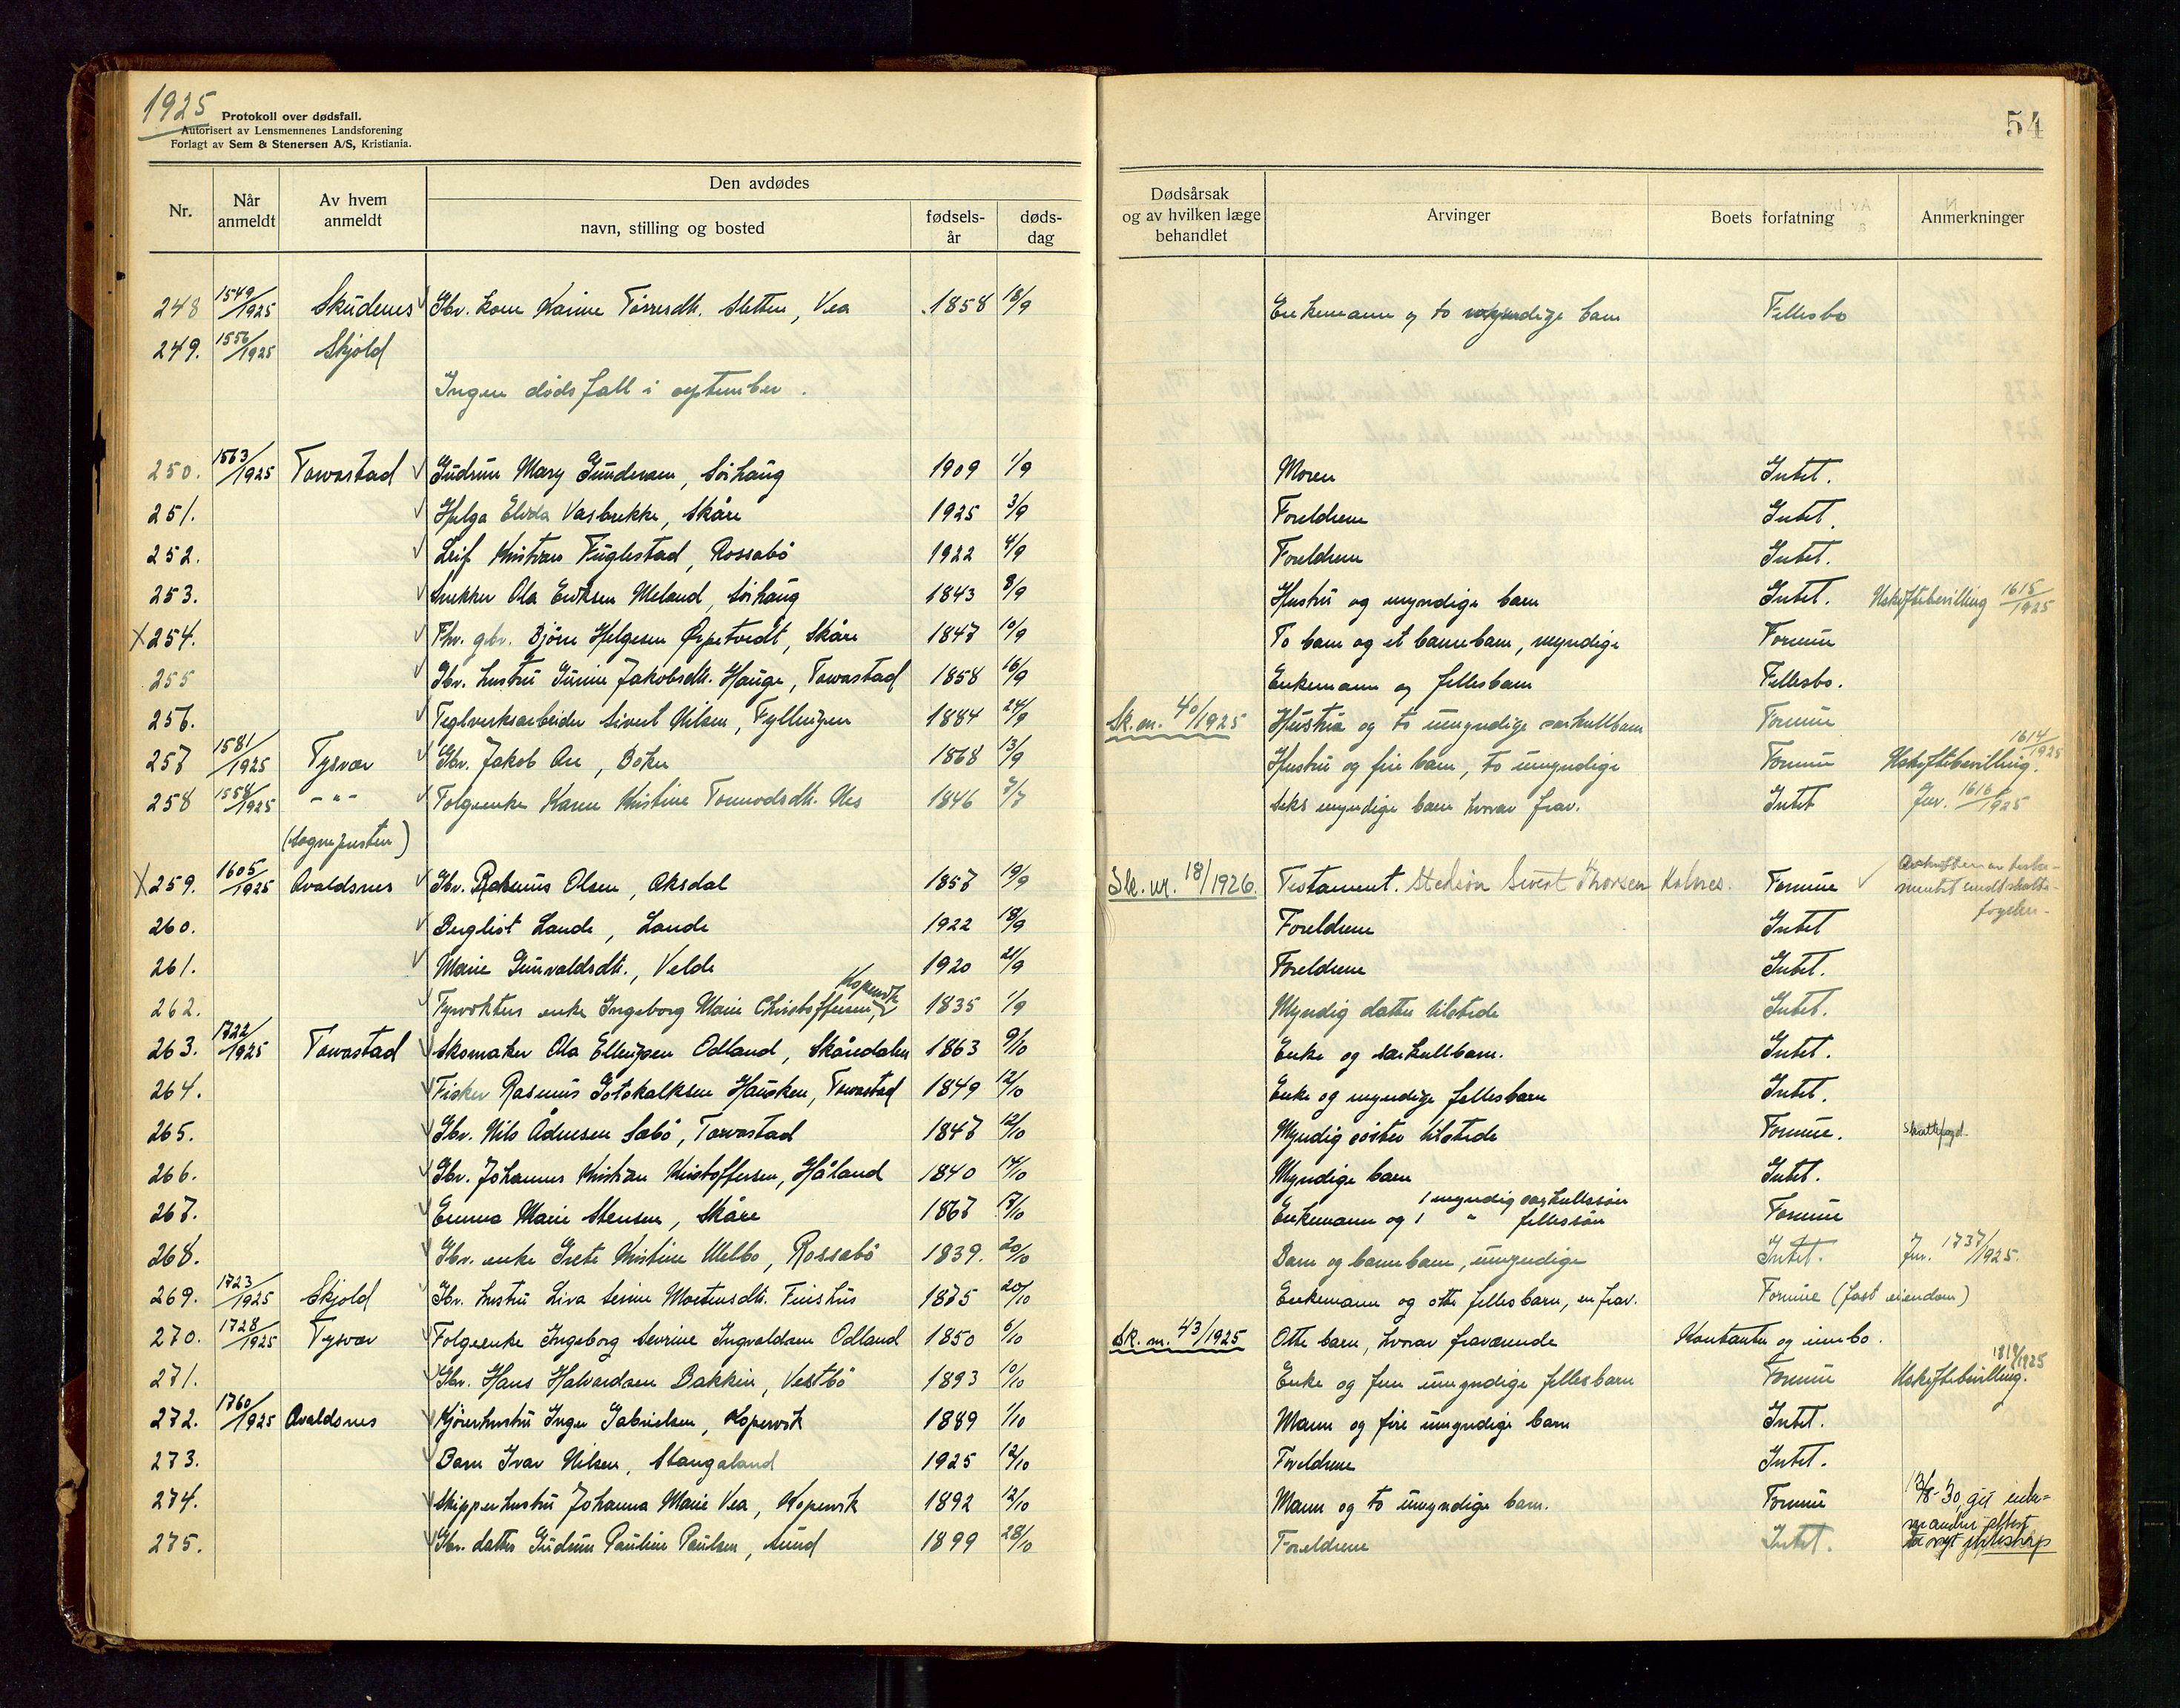 1925
Protokoll over dødsfall.
Autorisert av Lensmennenes Landsforening
Forlagt av Sem & Stenersen A/S, Kristiania.
54
Nr. Når anmeldt Av hvem anmeldt Den avdødes navn, stilling og bosted fødsels-år døds-dag Dødsårsak og av hvilken læge behandlet Arvinger Boets forfatning Anmerkninger
248 1549/1925 Skudenes Gbr. kone Karine Tørresdtr. Sletten, Vea 1858 18/9 Enkemann og to myndige barn Fellesbo
249. 1556/1925 Skjold
Ingen dødsfall i september.
250. 1563/1925 Torvastad Gudrun Mary Gundersen, Sørhaug 1909 1/9 Moren Intet.
251. Helga Elvda Vasbrekke, Skåre 1925 3/9 Foreldrene Intet.
252. Leif Kristian Fuglestad, Rossabø 1922 4/9 Foreldrene Intet.
253. Snekker Ola Eriksen Meland, Sørhaug 1843 8/9 Hustru og myndige barn Intet. Uskiftebevilling 1615/1925
X 254. Fhv. gbr. Bjørn Helgesen Ørpetvedt, Skåre 1847 10/9 To barn og et barnebarn, myndige Formue
255 Gbr. hustru Gurine Jakobsdtr. Hauge, Torvastad 1858 16/9 Enkemann og fellesbarn Fellesbo.
256. Teglverksarbeider Sivert Nilsen, Fyllingen 1884 24/9 Sk. nr. 40/1925 Hustru og to umyndige særkullbarn Formue
257 1581/1925 Tysvær Gbr. Jakob Are, Boken 1868 13/9 Hustru og fire barn, to umyndige Formue Uskiftebevilling. 1614/1925
258 1558/1925 -"- Folgeenke Karen Kristine Tormodsdtr. Nes 1846 7/7 Seks myndige barn hvorav frav. Intet Jnr. 1616/1925
(Sognepresten)
X 259. 1605/1925 Avaldsnes Gbr. Rasmus Olsen, Aksdal 1857 19/9 Sk. nr. 18/1926. Testament. Stedsøn Sivert Thorsen Kolnes. Formue Avskriften av testamentet sendt skattefogden.
260. Bergliot Lande, Lande 1922 18/9 Foreldrene Intet
261. Marie Gunvaldsdtr., Velde 1920 21/9 Foreldrene Intet.
262. Fyrvokters enke Ingeborg Marie Christoffersen, Kopervik 1835 1/9 Myndig datter tilstede Intet.
263. 1722/1925 Torvastad Skomaker Ola Ellingsen Odland, Skåredalen 1863 9/10 Enke og særkullbarn. Intet.
264. Fisker Rasmus Gotskalksen Hausken, Torvastad 1849 12/10 Enke og myndige fellesbarn Intet.
265. Gbr. Nils Ådnesen Sæbø, Torvastad 1847 12/10 Myndig søster tilstede Formue. Skattefogd.
266. Gbr. Johannes Kristian Kristoffersen, Håland 1840 14/10 Myndige barn Intet.
267. Emma Marie Stensen, Skåre 1867 17/10 Enkemann og 1 myndig særkullssøn 1 " fellessøn Formue
268. Gbr. enke Grete Kristine Melbo, Rossabø 1839. 20/10 Barn og barnebarn, umyndige Intet. Jnr. 1737/1925.
269. 1723/1925 Skjold Gbr. hustru Liva Serine Mortensdtr. Finshus 1875 20/10 Enkemann og otte fellesbarn, en frav. Formue (fast eiendom)
270. 1728/1925 Tysvær Folgeenke Ingeborg Sevrine Ingvaldsen Odland 1850 6/10 Sk. nr. 43/1925 Otte barn, hvorav fraværende Kontanter og innbo.
271. Gbr. Hans Halvardsen Bakken, Vestbø 1893 10/10 Enke og fem umyndige fellesbarn Formue Uskiftebevilling. 1819/1925
272. 1760/1925 Avaldsnes Kjørerhustru Inger Gabrielsen, Kopervik 1889 1/10 Mann og fire umyndige barn Intet.
273. Barn Ivar Nilsen, Stangaland 1925 12/10 Foreldrene Intet.
274. Skipperhustru Johanna Marie Vea, Kopervik 1892 12/10 Mann og to umyndige barn. Formue
275. Gbr. datter Gudrun Pauline Paulsen, Sund 1899 28/10 Foreldrene Intet.